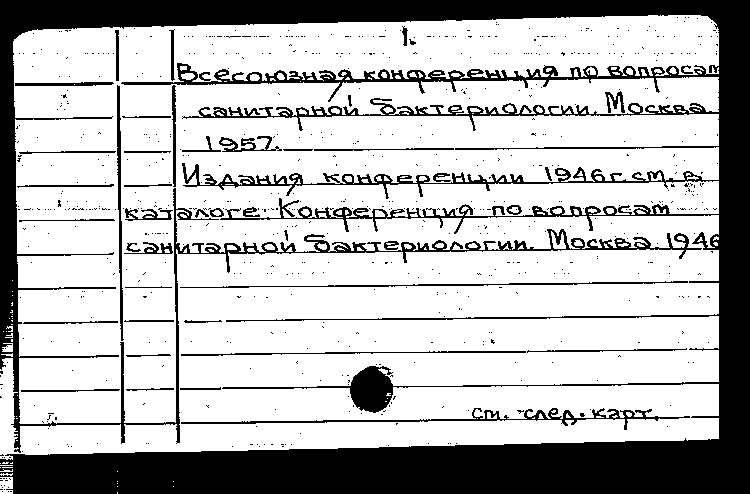 1.
Всесоюзная конференция по вопросам
санитарной бактериологии. Москва
1957.
Издания конференции 1946 г. см. в
каталоге: Конференция по вопросам
санитарной бактериологии. Москва. 1946
см. след. карт.